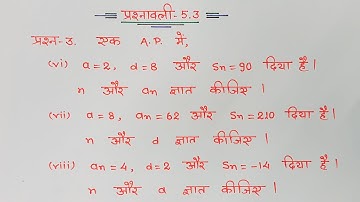 प्रश्नावली-5.3
प्रश्न-3. एक A.P. में,
(vi) a=2, d=8 और Sn=90 दिया है।
n और an ज्ञात कीजिए।
(vii) a=8, an=62 और Sn=210 दिया है।
n और d ज्ञात कीजिए।
(viii) an=4, d=2 और Sn=-14 दिया है।
n और a ज्ञात कीजिए।